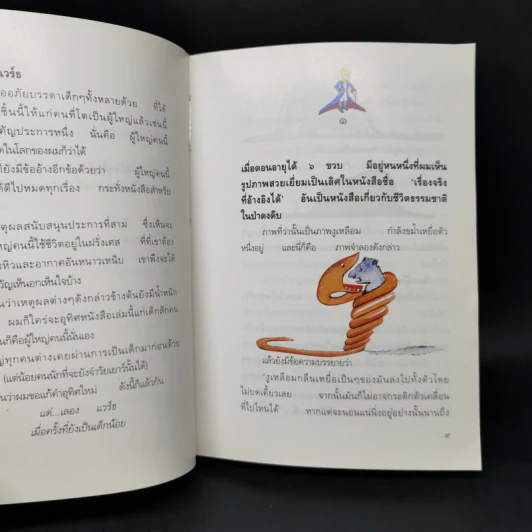 แวร์ธ
ออภัยบรรดาเด็กๆทั้งหลายด้วย ที่ได้
ชิ้นนี้ให้แก่คนที่โตเป็นผู้ใหญ่แล้วเช่นนี้
คัญประการหนึ่ง นั่นคือ ผู้ใหญ่คนนี้
ดในโลกของผมก็ว่าได้
ก็ยังมีข้ออ้างอีกข้อด้วยว่า ผู้ใหญ่คนนี้
ได้ดีไปหมดทุกเรื่อง กระทั่งหนังสือสำหรับ
หตุผลสนับสนุนประการที่สาม ซึ่งเห็นจะ
หญ่คนนี้ใช้ชีวิตอยู่ในฝรั่งเศส ที่ที่เขาต้อง
หิวและอากาศอันหนาวเหน็บ เขาพึงจะได้
วัญเห็นอกเห็นใจบ้าง
นว่าเหตุผลต่างๆดังกล่าวข้างต้นยังมีน้ำหนัก
ผมก็ใคร่จะอุทิศหนังสือเล่มนี้แก่เด็กสักคน
นก็คือผู้ใหญ่คนนี้นั่นเอง
ญ่ทุกคนต่างเคยผ่านการเป็นเด็กมาก่อนด้วย
(แต่น้อยคนนักที่จะยังจำวัยเยาว์นั้นได้)
นว่าผมขอแก้คำอุทิศใหม่ ดังนี้ก็แล้วกัน
แด่...เลออง แวร์ธ
เมื่อครั้งที่ยังเป็นเด็กน้อย
๑
เมื่อตอนอายุได้ ๖ ขวบ มีอยู่หนหนึ่งที่ผมเห็น
รูปภาพสวยเยี่ยมเป็นเลิศในหนังสือชื่อ 'เรื่องจริง
ที่อ้างอิงได้' อันเป็นหนังสือเกี่ยวกับชีวิตธรรมชาติ
ในป่าดงดิบ
ภาพที่ว่านั้นเป็นภาพงูเหลือม กำลังขม้ำเหยื่อตัว
หนึ่งอยู่ และนี่ก็คือ ภาพจำลองดังกล่าว
แล้วยังมีข้อความบรรยายว่า
"งูเหลือมกลืนเหยื่อเป็นๆของมันลงไปทั้งตัวโดย
ไม่บดเคี้ยวเลย จากนั้นมันก็ไม่อาจกระดิกตัวเคลื่อน
ที่ไปไหนได้ หากแต่จะนอนแน่นิ่งอยู่อย่างนั้นนานถึง